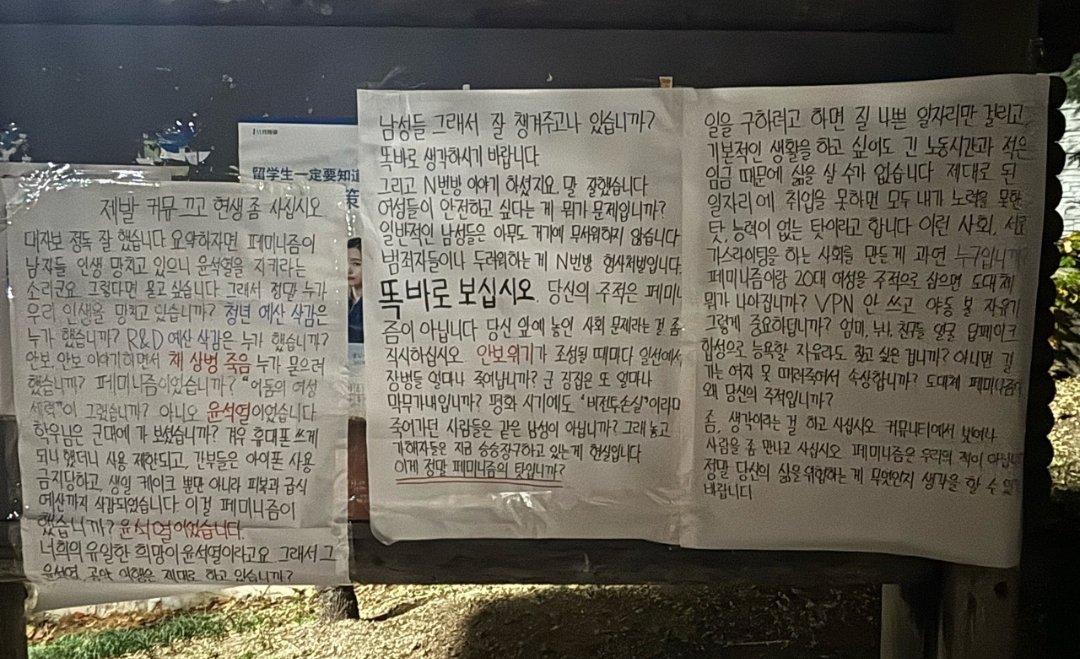 留学生一定要知道
策
제발 커뮤 끄고 현생 좀 사십시오
대자보 정독 잘 했습니다. 요약하자면, 페미니즘이
남자들 인생 망치고 있으니 윤석열을 지키라는
소리군요. 그렇다면 묻고 싶습니다. 그래서 정말 누가
우리 인생을 망치고 있습니까? 청년 예산 삭감은
누가 했습니까? R&D 예산 삭감은 누가 했습니까?
안보, 안보 이야기하면서 채 상병 죽음 누가 묻으려
했습니까? 페미니즘이었습니까? "어둠의 여성
세력"이 그랬습니까? 아니오 윤석열이었습니다
학우님은 군대에 가 보셨습니까? 겨우 휴대폰 쓰게
되나 했더니 사용 제한되고, 간부들은 아이폰 사용
금지당하고, 생일 케이크 뿐만 아니라 피복과 급식
예산까지 삭감되었습니다. 이걸 페미니즘이
했습니까? 윤석열이었습니다.
너희의 유일한 희망이 윤석열이라고요. 그래서 그
윤석열, 공약 이행은 제대로 하고 있습니까?
남성들 그래서 잘 챙겨주고나 있습니까?
똑바로 생각하시기 바랍니다
그리고 N번방 이야기 하셨지요. 말 잘했습니다
여성들이 안전하고 싶다는 게 뭐가 문제입니까?
일반적인 남성들은 아무도 거기에 무서워하지 않습니다
범죄자들이나 두려워하는 게 N번방 형사처벌입니다
똑바로 보십시오. 당신의 주적은 페미니
즘이 아닙니다 당신 앞에 놓인 사회 문제라는 걸 좀
직시하십시오. 안보위기가 조성될 때마다 일선에서
장병들 얼마나 죽어납니까? 군 징집은 또 얼마나
막무가내입니까? 평화 시기에도 "비전투손실"이라며
죽어가던 사람들은 같은 남성이 아닙니까? 그래 놓고
가해자들은 지금 승승장구하고 있는 게 현실입니다
이게 정말 페미니즘의 탓입니까?
일을 구하려고 하면 질 나쁜 일자리만 걸리고,
기본적인 생활을 하고 싶어도 긴 노동시간과 적은
임금 때문에 삶을 살 수가 없습니다 제대로 된
일자리에 취업을 못하면 모두 내가 노력을 못한
탓, 능력이 없는 탓이라고 합니다 이런 사회, 서로
가스라이팅을 하는 사회를 만든게 과연 누구입니까
페미니즘이랑 20대 여성을 주적으로 삼으면 도대체
뭐가 나아집니까? VPN 안 쓰고 야동 볼 자유가
그렇게 중요하답니까? 엄마, 누나, 친구들 얼굴 딥페이크
합성으로 능욕할 자유라도 찾고 싶은 겁니까? 아니면 길
가는 여자 못 때려죽여서 속상합니까? 도대체 페미니즘이
왜 당신의 주적입니까?
좀, 생각이라는 걸 하고 사십시오 커뮤니티에서 벗어나
사람을 좀 만나고 사십시오 페미니즘은 우리의 적이 아닙니
정말 당신의 삶을 위협하는 게 무엇인지 생각을 할 수 있
바랍니다